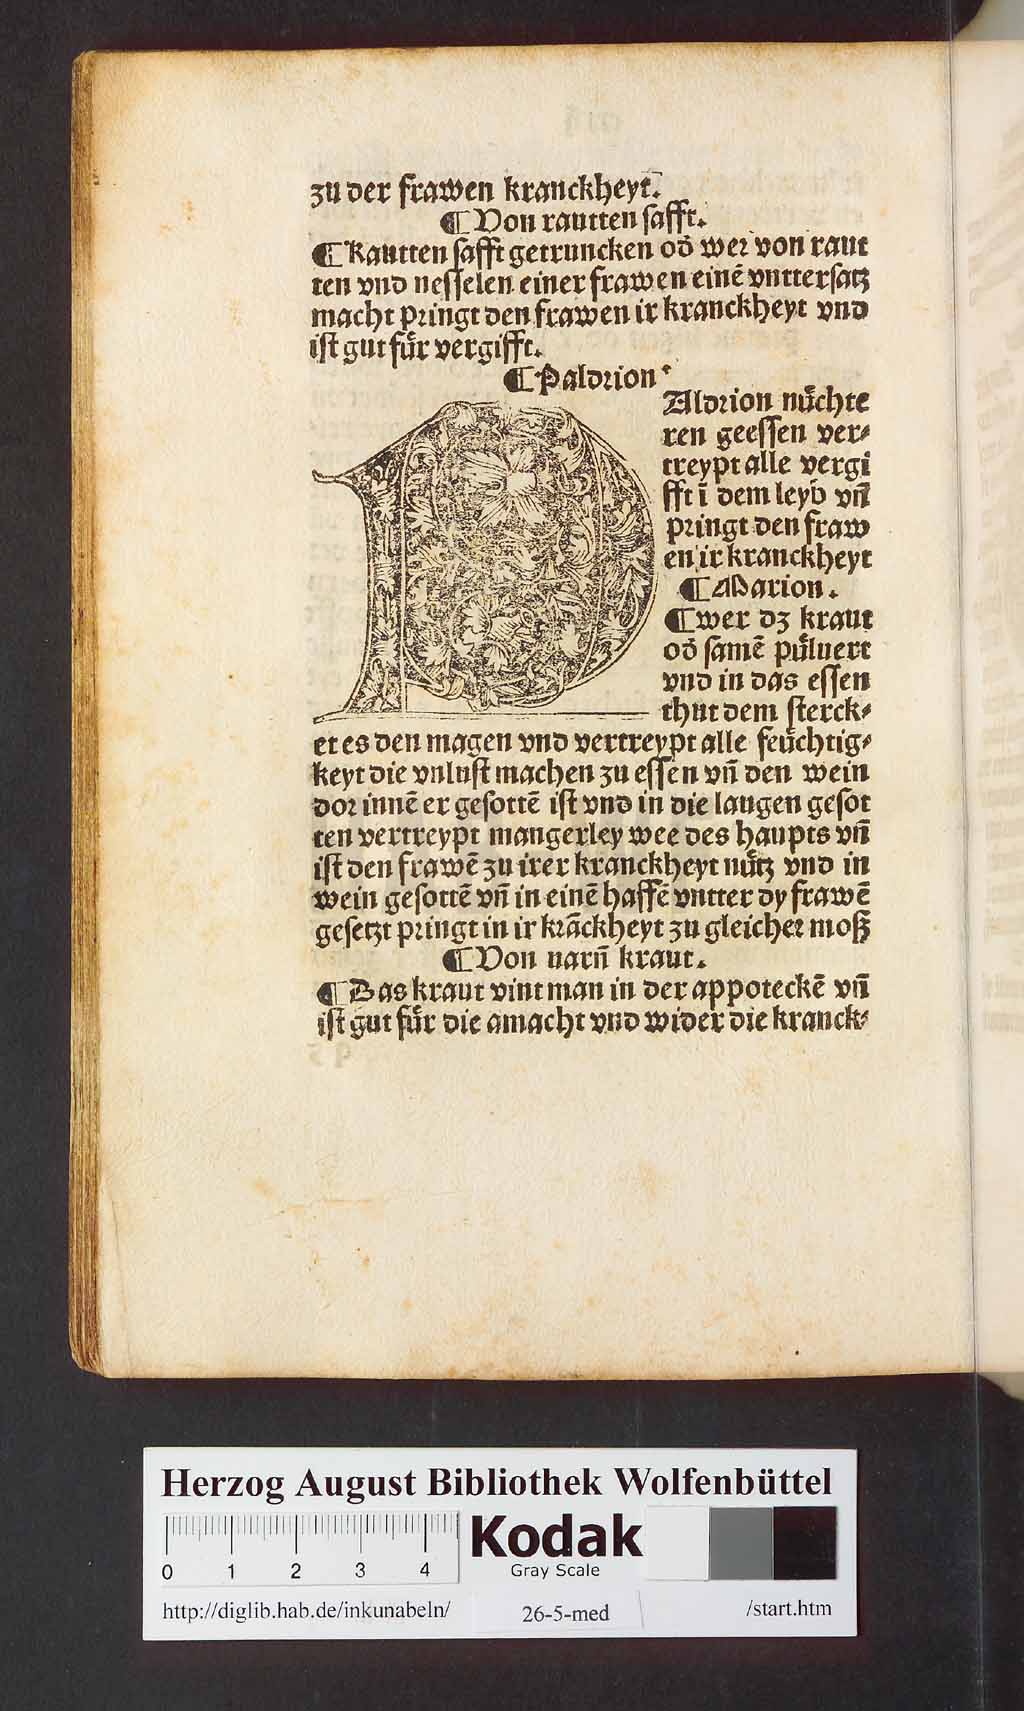 zu der frawen kranckheyt.
¶ Von rautten safft.
¶ Rautten safft getruncken od̕ wer von raut
ten vnd nesselen einer frawen einē vnttersatz
macht pringt den frawen ir kranckheyt vnd
ist gut fuͤr vergifft.
¶ Paldrion
P Aldrion nuͤchte
ren geessen ver⸗
treypt alle vergi
fft ī dem leyb vn̄
pringt den fraw
en ir kranckheyt
¶ Marion.
¶ wer dz kraut
od̕ samē puͤluert
vnd in das essen
thut dem sterck⸗
et es den magen vnd vertreypt alle feuͤchtig⸗
keyt die vnlust machen zu essen vn̄ den wein
dor innē er gesottē ist vnd in die laugen gesot
ten vertreypt mangerley wee des haupts vn̄
ist den frawē zu irer kranckheyt nuͤtz vnd in
wein gesottē vn̄ in einē haffē vntter dy frawē
gesetzt pringt in ir krāckheyt zu gleicher moß
¶ Von narn̄ kraut.
¶ Das kraut vint man in der appoteckē vn̄
ist gut fuͤr die amacht vnd wider die kranck⸗
Herzog August Bibliothek Wolfenbüttel
0 1 2 3 4
Kodak
Gray Scale
http://diglib.hab.de/inkunabeln/ 26-5-med /start.htm